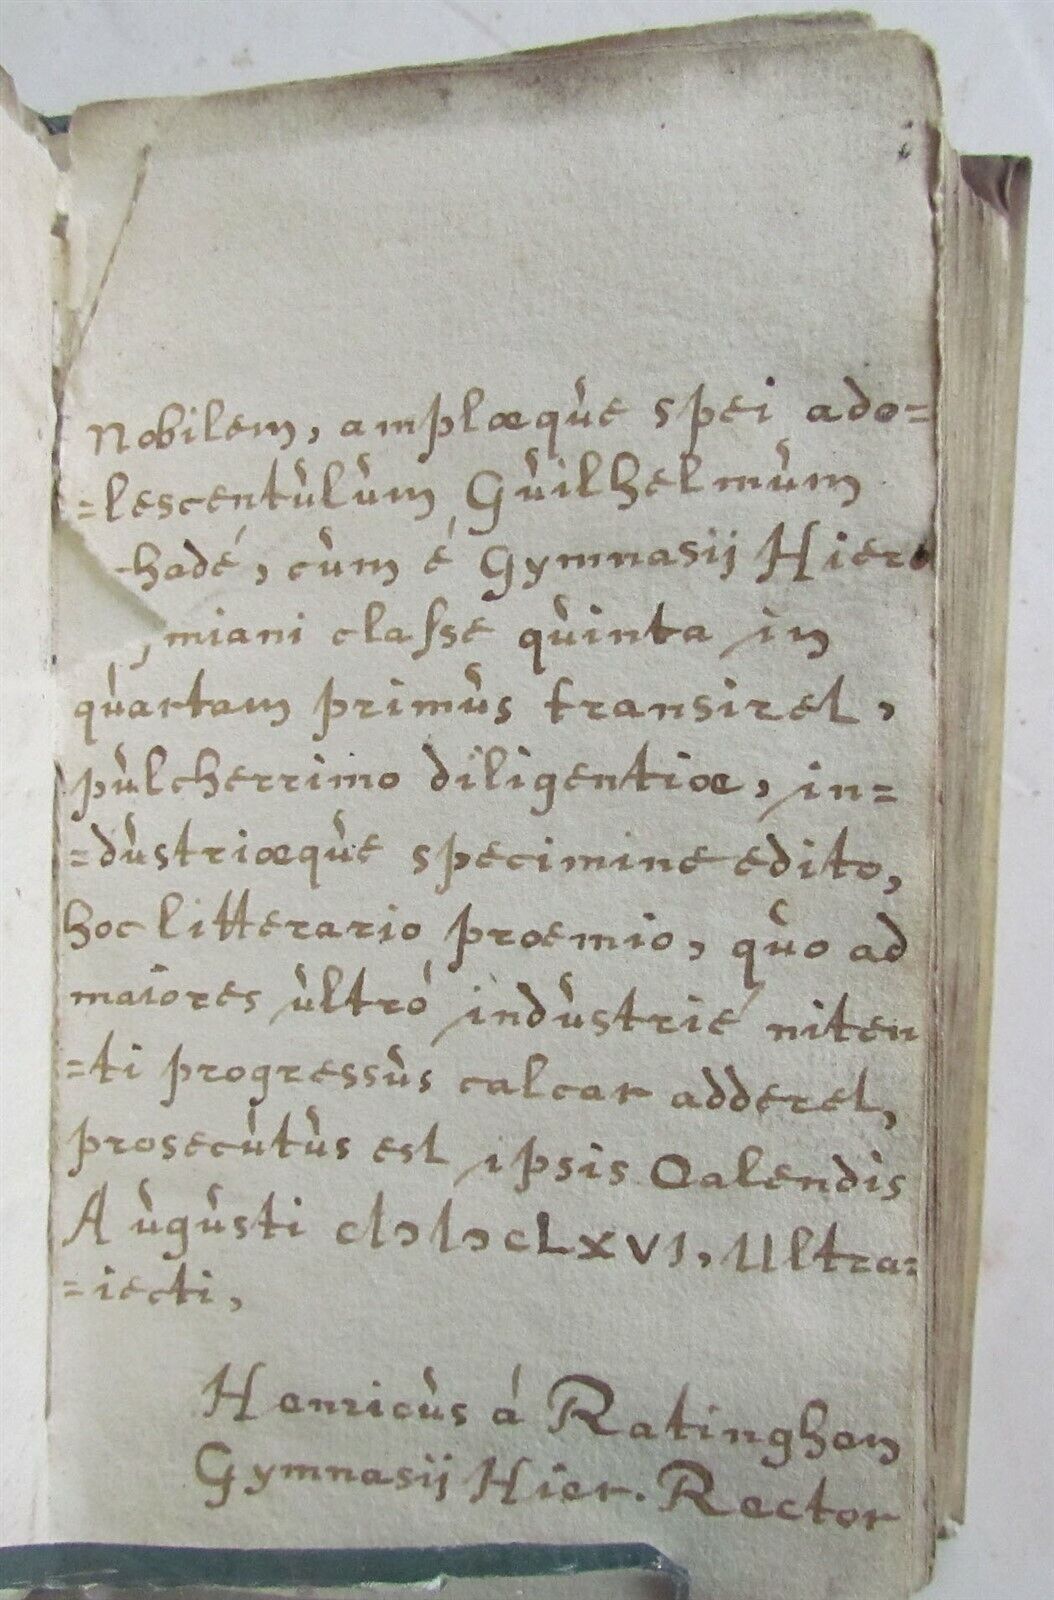 Nobilem, amplæque spei ado=
=lescentulum Guilhelmum
-hadé, cum é Gymnasij Hiero
miani classe quinta in
quartam primus transiret,
pulcherrimo diligentiæ, in=
=dustriæque specimine edito,
hoc litterario prœmio, quo ad
maiores ultró industrié niten
=ti progressus calcar adderet,
prosecutus est ipsis Calendis
Augusti cIↄIↄcLXVI, Ultra=
=iecti,
Henricus á Ratinghen
Gymnasij Hier. Rector